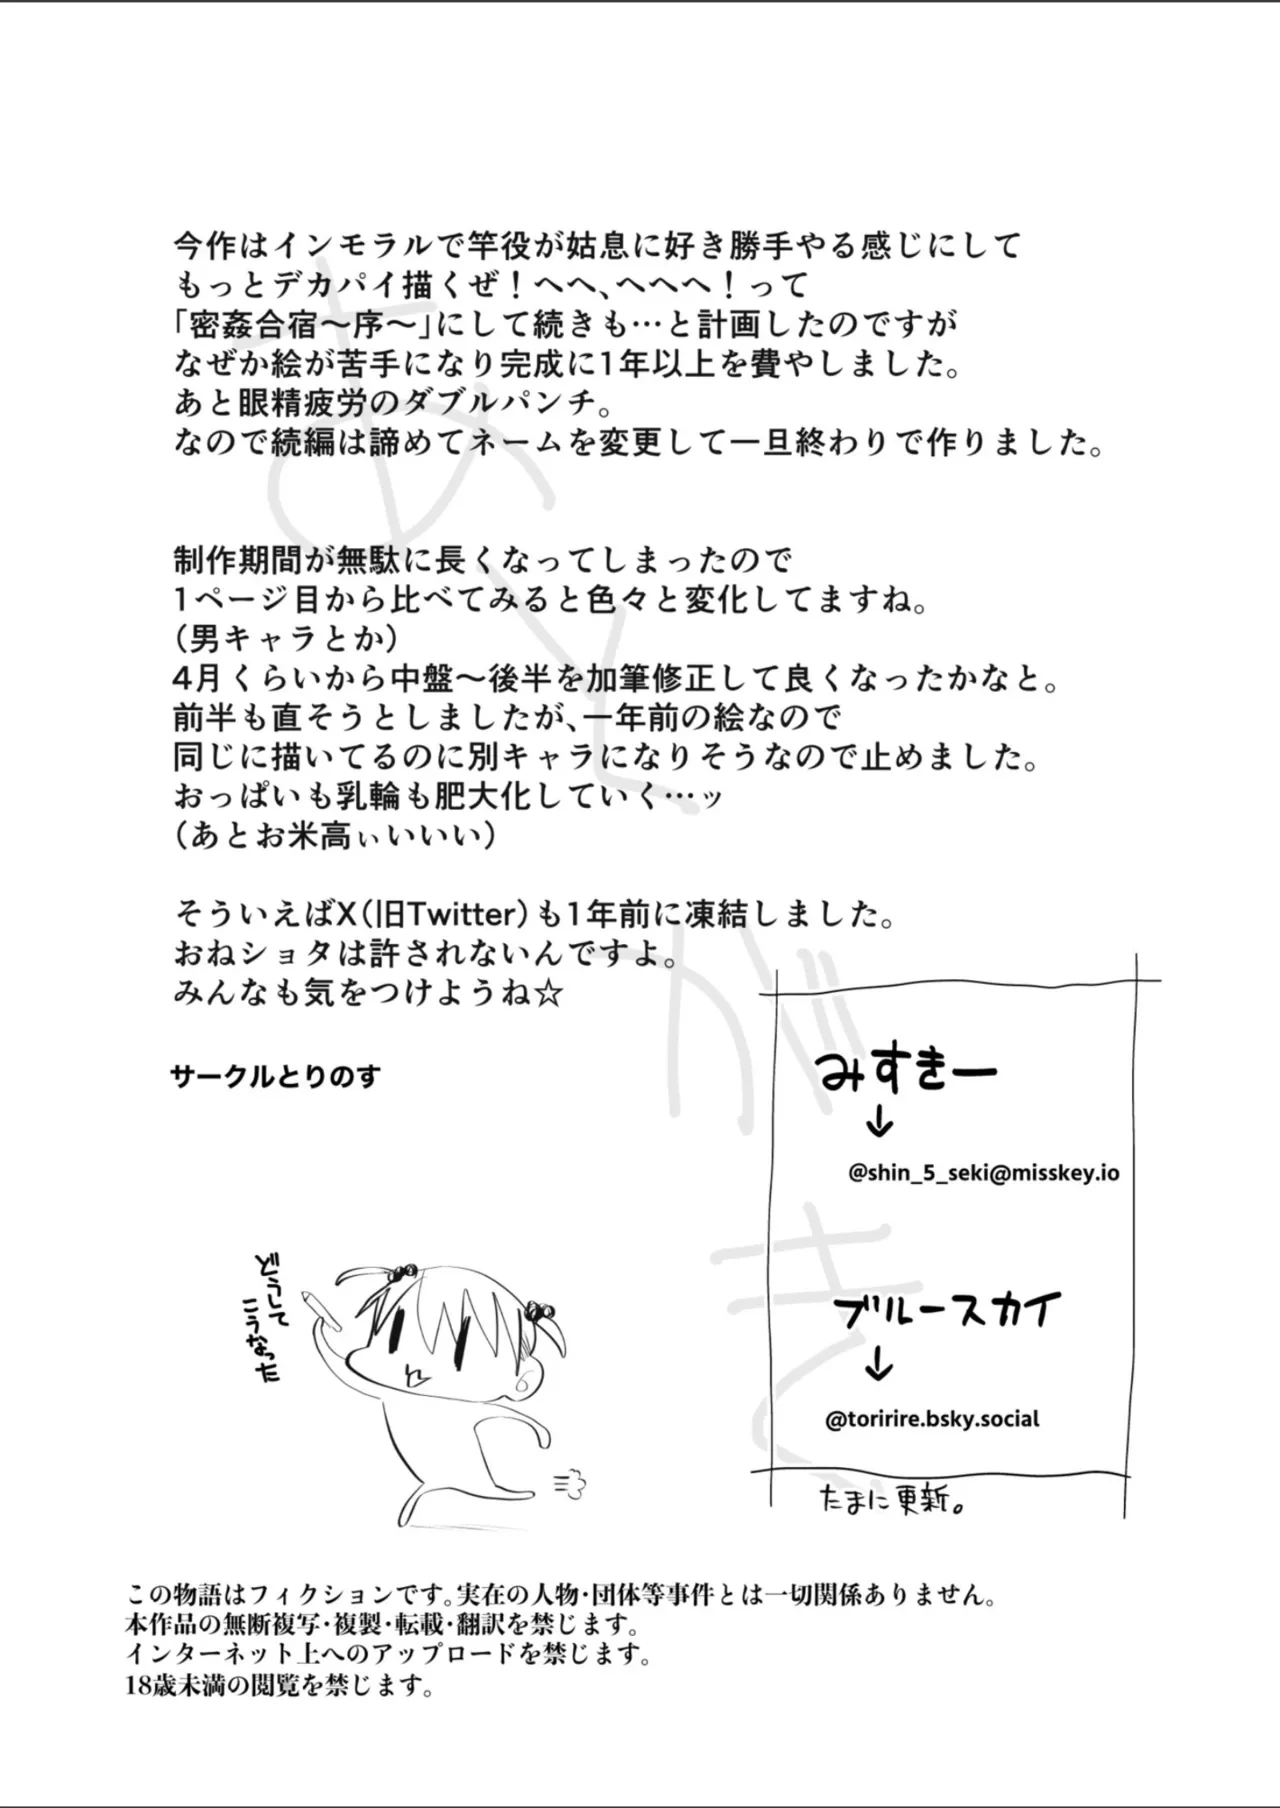 あとがき
今作はインモラルで竿役が姑息に好き勝手やる感じにして
もっとデカパイ描くぜ！へへ、へへへ！って
「密姦合宿〜序〜」にして続きも…と計画したのですが
なぜか絵が苦手になり完成に1年以上を費やしました。
あと眼精疲労のダブルパンチ。
なので続編は諦めてネームを変更して一旦終わりで作りました。
制作期間が無駄に長くなってしまったので
1ページ目から比べてみると色々と変化してますね。
（男キャラとか）
4月くらいから中盤〜後半を加筆修正して良くなったかなと。
前半も直そうとしましたが、一年前の絵なので
同じに描いてるのに別キャラになりそうなので止めました。
おっぱいも乳輪も肥大化していく…ッ
（あとお米高ぃいいい）
そういえばX（旧Twitter）も1年前に凍結しました。
おねショタは許されないんですよ。
みんなも気をつけようね☆
サークルとりのす
みすきー
↓
@shin_5_seki@misskey.io
ブルースカイ
↓
@toririre.bsky.social
たまに更新。
どうして
こうなった
この物語はフィクションです。実在の人物・団体等事件とは一切関係ありません。
本作品の無断複写・複製・転載・翻訳を禁じます。
インターネット上へのアップロードを禁じます。
18歳未満の閲覧を禁じます。